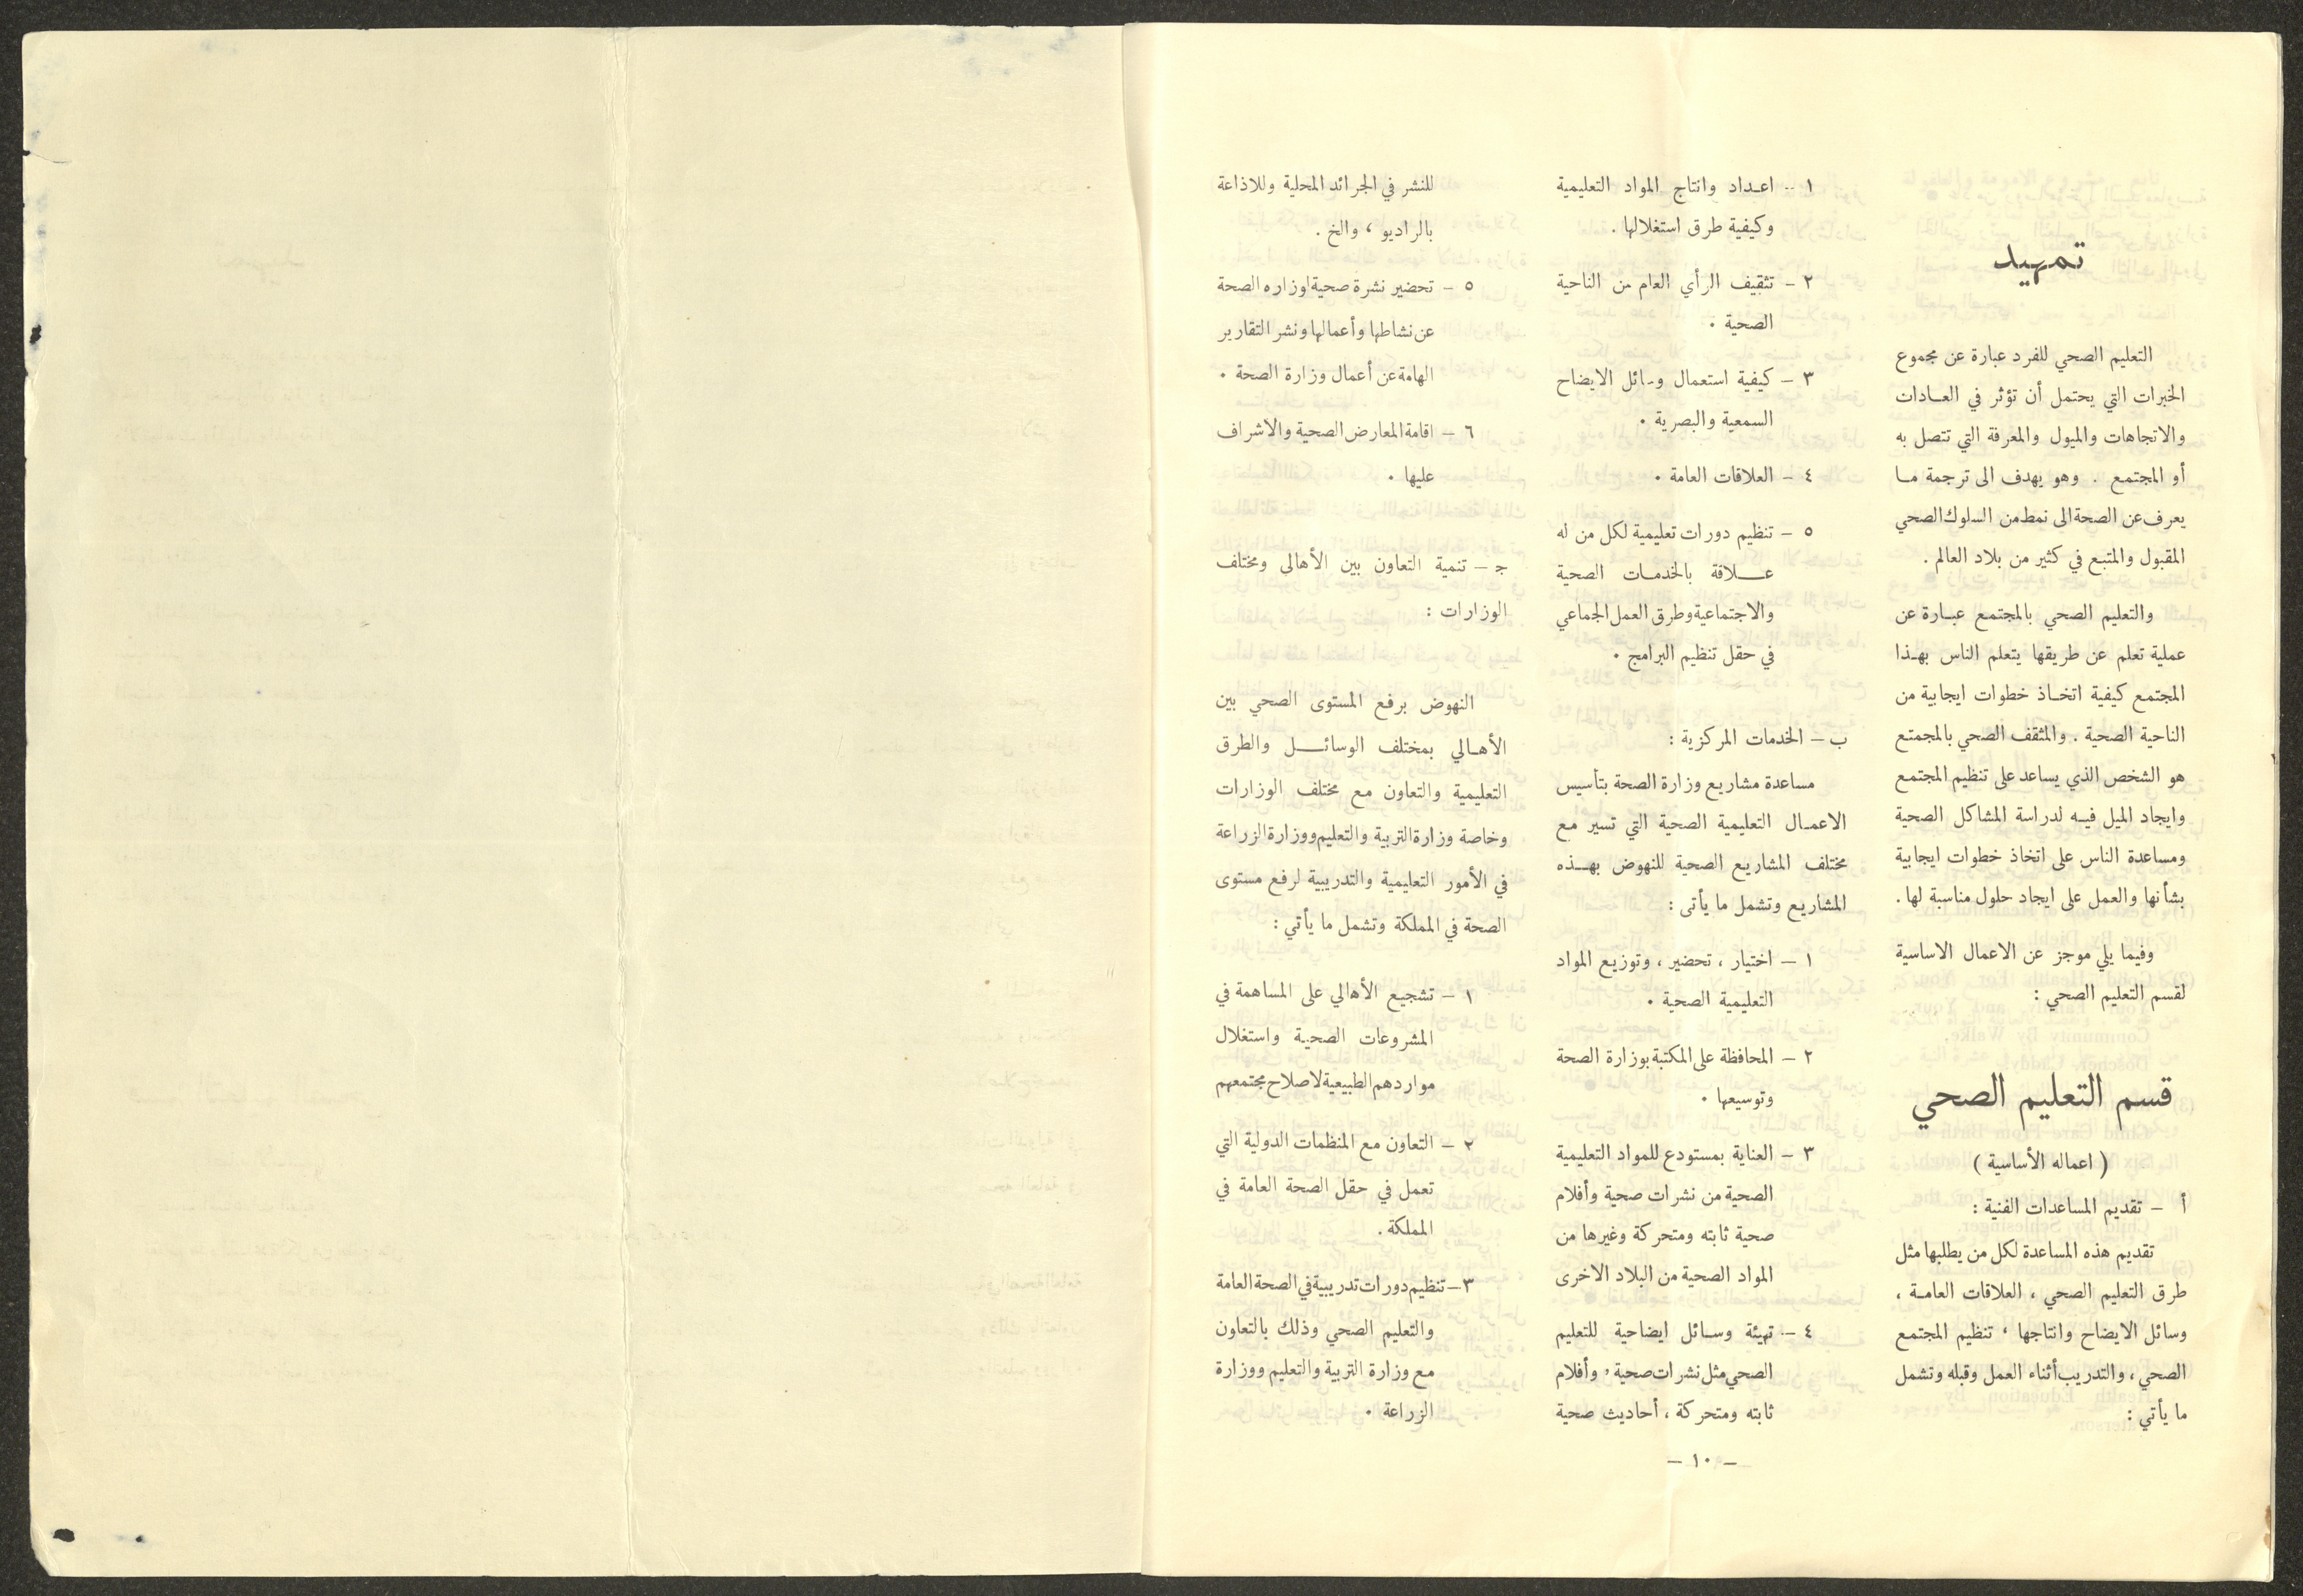 تمهيد
التعليم الصحي للفرد عبارة عن مجموع
الخبرات التي يحتمل أن تؤثر في العادات
والاتجاهات والميول والمعرفة التي تتصل به
أو المجتمع . وهو يهدف الى ترجمة ما
يعرف عن الصحة الى نمط من السلوك الصحي
المقبول والمتبع في كثير من بلاد العالم .
والتعليم الصحي بالمجتمع عبارة عن
عملية تعلم عن طريقها يتعلم الناس بهذا
المجتمع كيفية اتخاذ خطوات ايجابية من
الناحية الصحية . والمثقف الصحي بالمجمتع
هو الشخص الذي يساعد على تنظيم المجتمع
وايجاد الميل فيه لدراسة المشاكل الصحية
ومساعدة الناس على اتخاذ خطوات ايجابية
بشأنها والعمل على ايجاد حلول مناسبة لها .
وفيما يلي موجز عن الاعمال الاساسية
لقسم التعليم الصحي :
قسم التعليم الصحي
( اعماله الأساسية )
أ – تقديم المساعدات الفنية :
تقديم هذه المساعدة لكل من يطلبها مثل
طرق التعليم الصحي ، العلاقات العامة ،
وسائل الايضاح وانتاجها ، تنظيم المجتمع
الصحي ، والتدريب أثناء العمل وقبله وتشمل
ما يأتي :
١ – اعداد وانتاج المواد التعليمية
وكيفية طرق استغلالها .
٢ – تثقيف الرأي العام من الناحية
الصحية .
٣ – كيفية استعمال وسائل الايضاح
السمعية والبصرية .
٤ – العلاقات العامة .
٥ – تنظيم دورات تعليمية لكل من له
علاقة بالخدمات الصحية
والاجتماعية وطرق العمل الجماعي
في حقل تنظيم البرامج .
ب – الخدمات المركزية :
مساعدة مشاريع وزارة الصحة بتأسيس
الاعمال التعليمية الصحية التي تسير مع
مختلف المشاريع الصحية للنهوض بهذه
المشاريع وتشمل ما يأتى :
١ – اختيار ، تحضير ، وتوزيع المواد
التعليمية الصحية .
٢ – المحافظة على المكتبة بوزارة الصحة
وتوسيعها .
٣ – العناية بمستودع للمواد التعليمية
الصحية من نشرات صحية وأفلام
صحية ثابته ومتحركة وغيرها من
المواد الصحية من البلاد الاخرى
٤ – تهيئة وسائل ايضاحية للتعليم
الصحي مثل نشرات صحية ، وأفلام
ثابته ومتحركة ، أحاديث صحية
للنشر في الجرائد المحلية وللاذاعة
بالراديو ، والخ .
٥ – تحضير نشرة صحية اوزاره الصحة
عن نشاطها وأعمالها ونشر التقارير
الهامة عن أعمال وزارة الصحة .
٦ – اقامة المعارض الصحية والاشراف
عليها .
ج – تنمية التعاون بين الأهالى ومختلف
الوزارات :
النهوض برفع المستوى الصحي بين
الأهالي بمختلف الوسائل والطرق
التعليمية والتعاون مع مختلف الوزارات
وخاصة وزارة التربية والتعليم ووزارة الزراعة
في الأمور التعليمية والتدريبية لرفع مستوى
الصحة في المملكة وتشمل ما يأتي :
١ – تشجيع الأهالي على المساهمة في
المشروعات الصحية واستغلال
مواردهم الطبيعية لاصلاح مجتمعهم
٢ – التعاون مع المنظمات الدولية التي
تعمل في حقل الصحة العامة في
المملكة .
٣ – تنظيم دورات تدريبية في الصحة العامة
والتعليم الصحي وذلك بالتعاون
مع وزارة التربية والتعليم ووزارة
الزراعة .
– ١٠ –